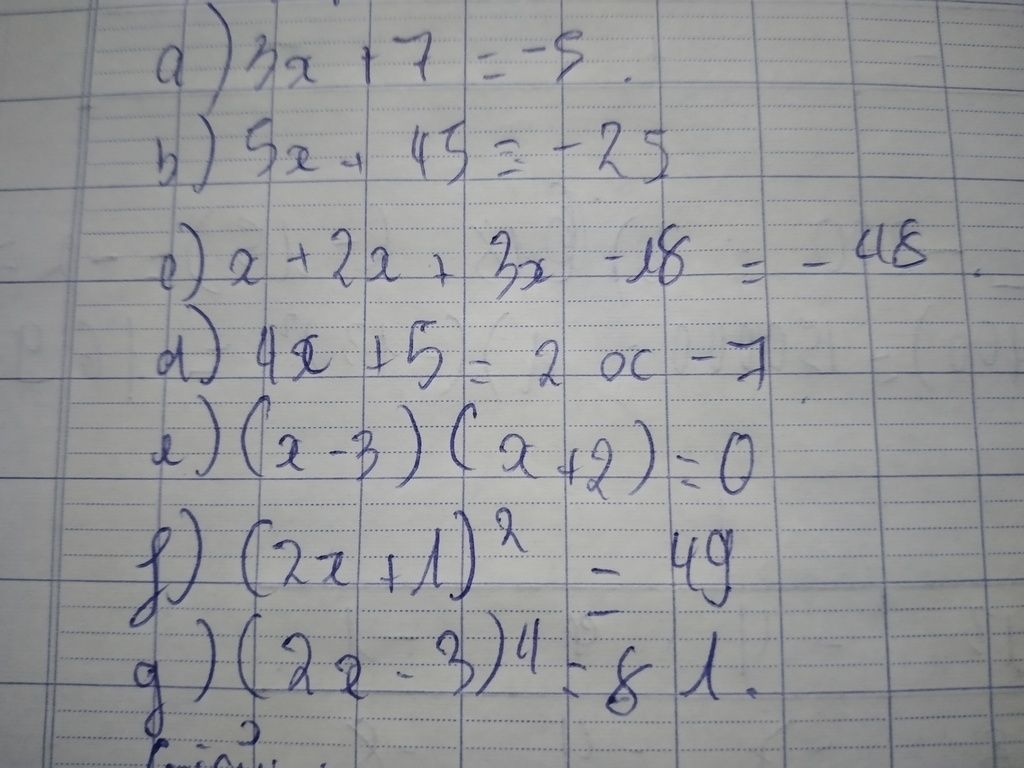 a) 3x + 7 = -5.
b) 5x + 45 = -25
c) x + 2x + 3x - 18 = - 48.
d) 4x + 5 = 2x - 7
e) (x - 3)(x + 2) = 0
f) (2x + 1)² = 49
g) (2x - 3)⁴ = 81.